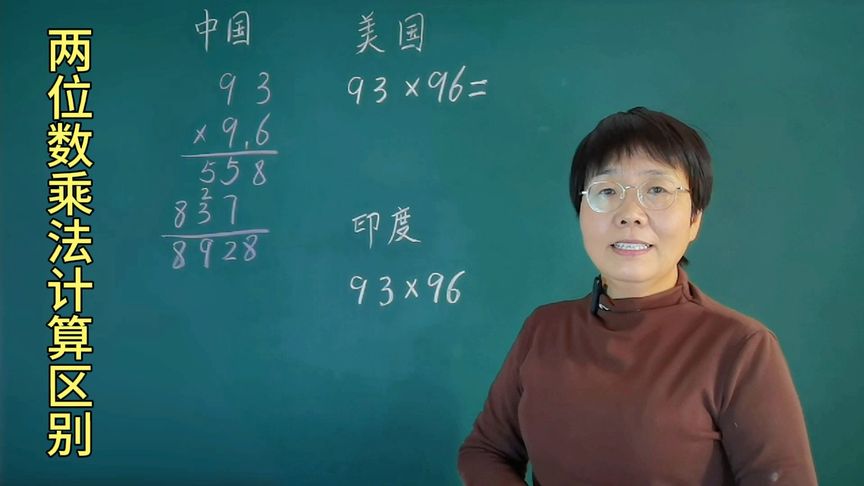 两位数乘法计算区别
中国
93
×96
558
2
837
8928
美国
93×96=
印度
93×96